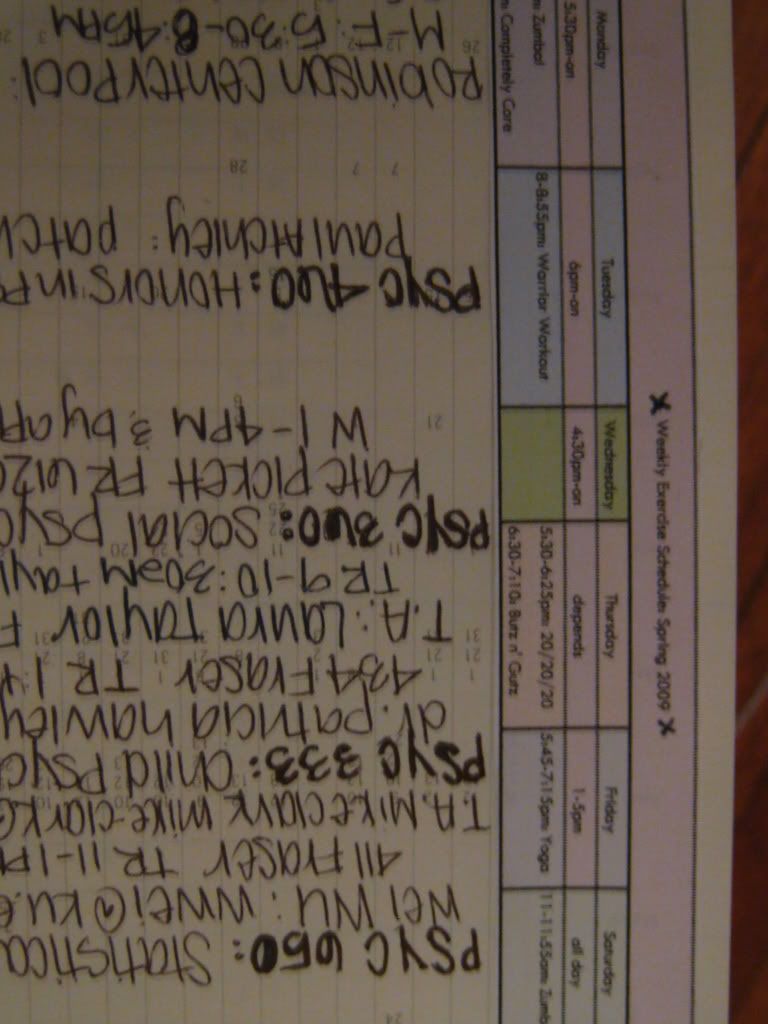 X Weekly Exercise Schedule: Spring 2009 X
Monday Tuesday Wednesday Thursday Friday Saturday
5:30pm-on 6pm-on 4:30pm-on depends 1-5pm all day
m: Zumba! 8-8:55pm: Warrior Workout 5:30-6:25pm: 20/20/20 5:45-7:15pm: Yoga 11-11:55am: Zumb
m: Completely Core 6:30-7:10: Bunz n' Gutz
PSYC 650: Statistica
Wei Wu: wwei@ku.e
411 Fraser TR 11-1P
T.A Mike Clark mike-clark@
PSYC 333: Child Psyc
dr. patricia hawley
434 Fraser TR 1-
T.A.: Laura Taylor F
TR 9-10:30am tayl
PSYC 360: Social Psyc
Kate Pickett FR 612
W 1-4PM & by ap
PSYC 460: Honors in P
Paul Atchley: patch
Robinson Center Pool:
M-F: 5:30-8:45PM